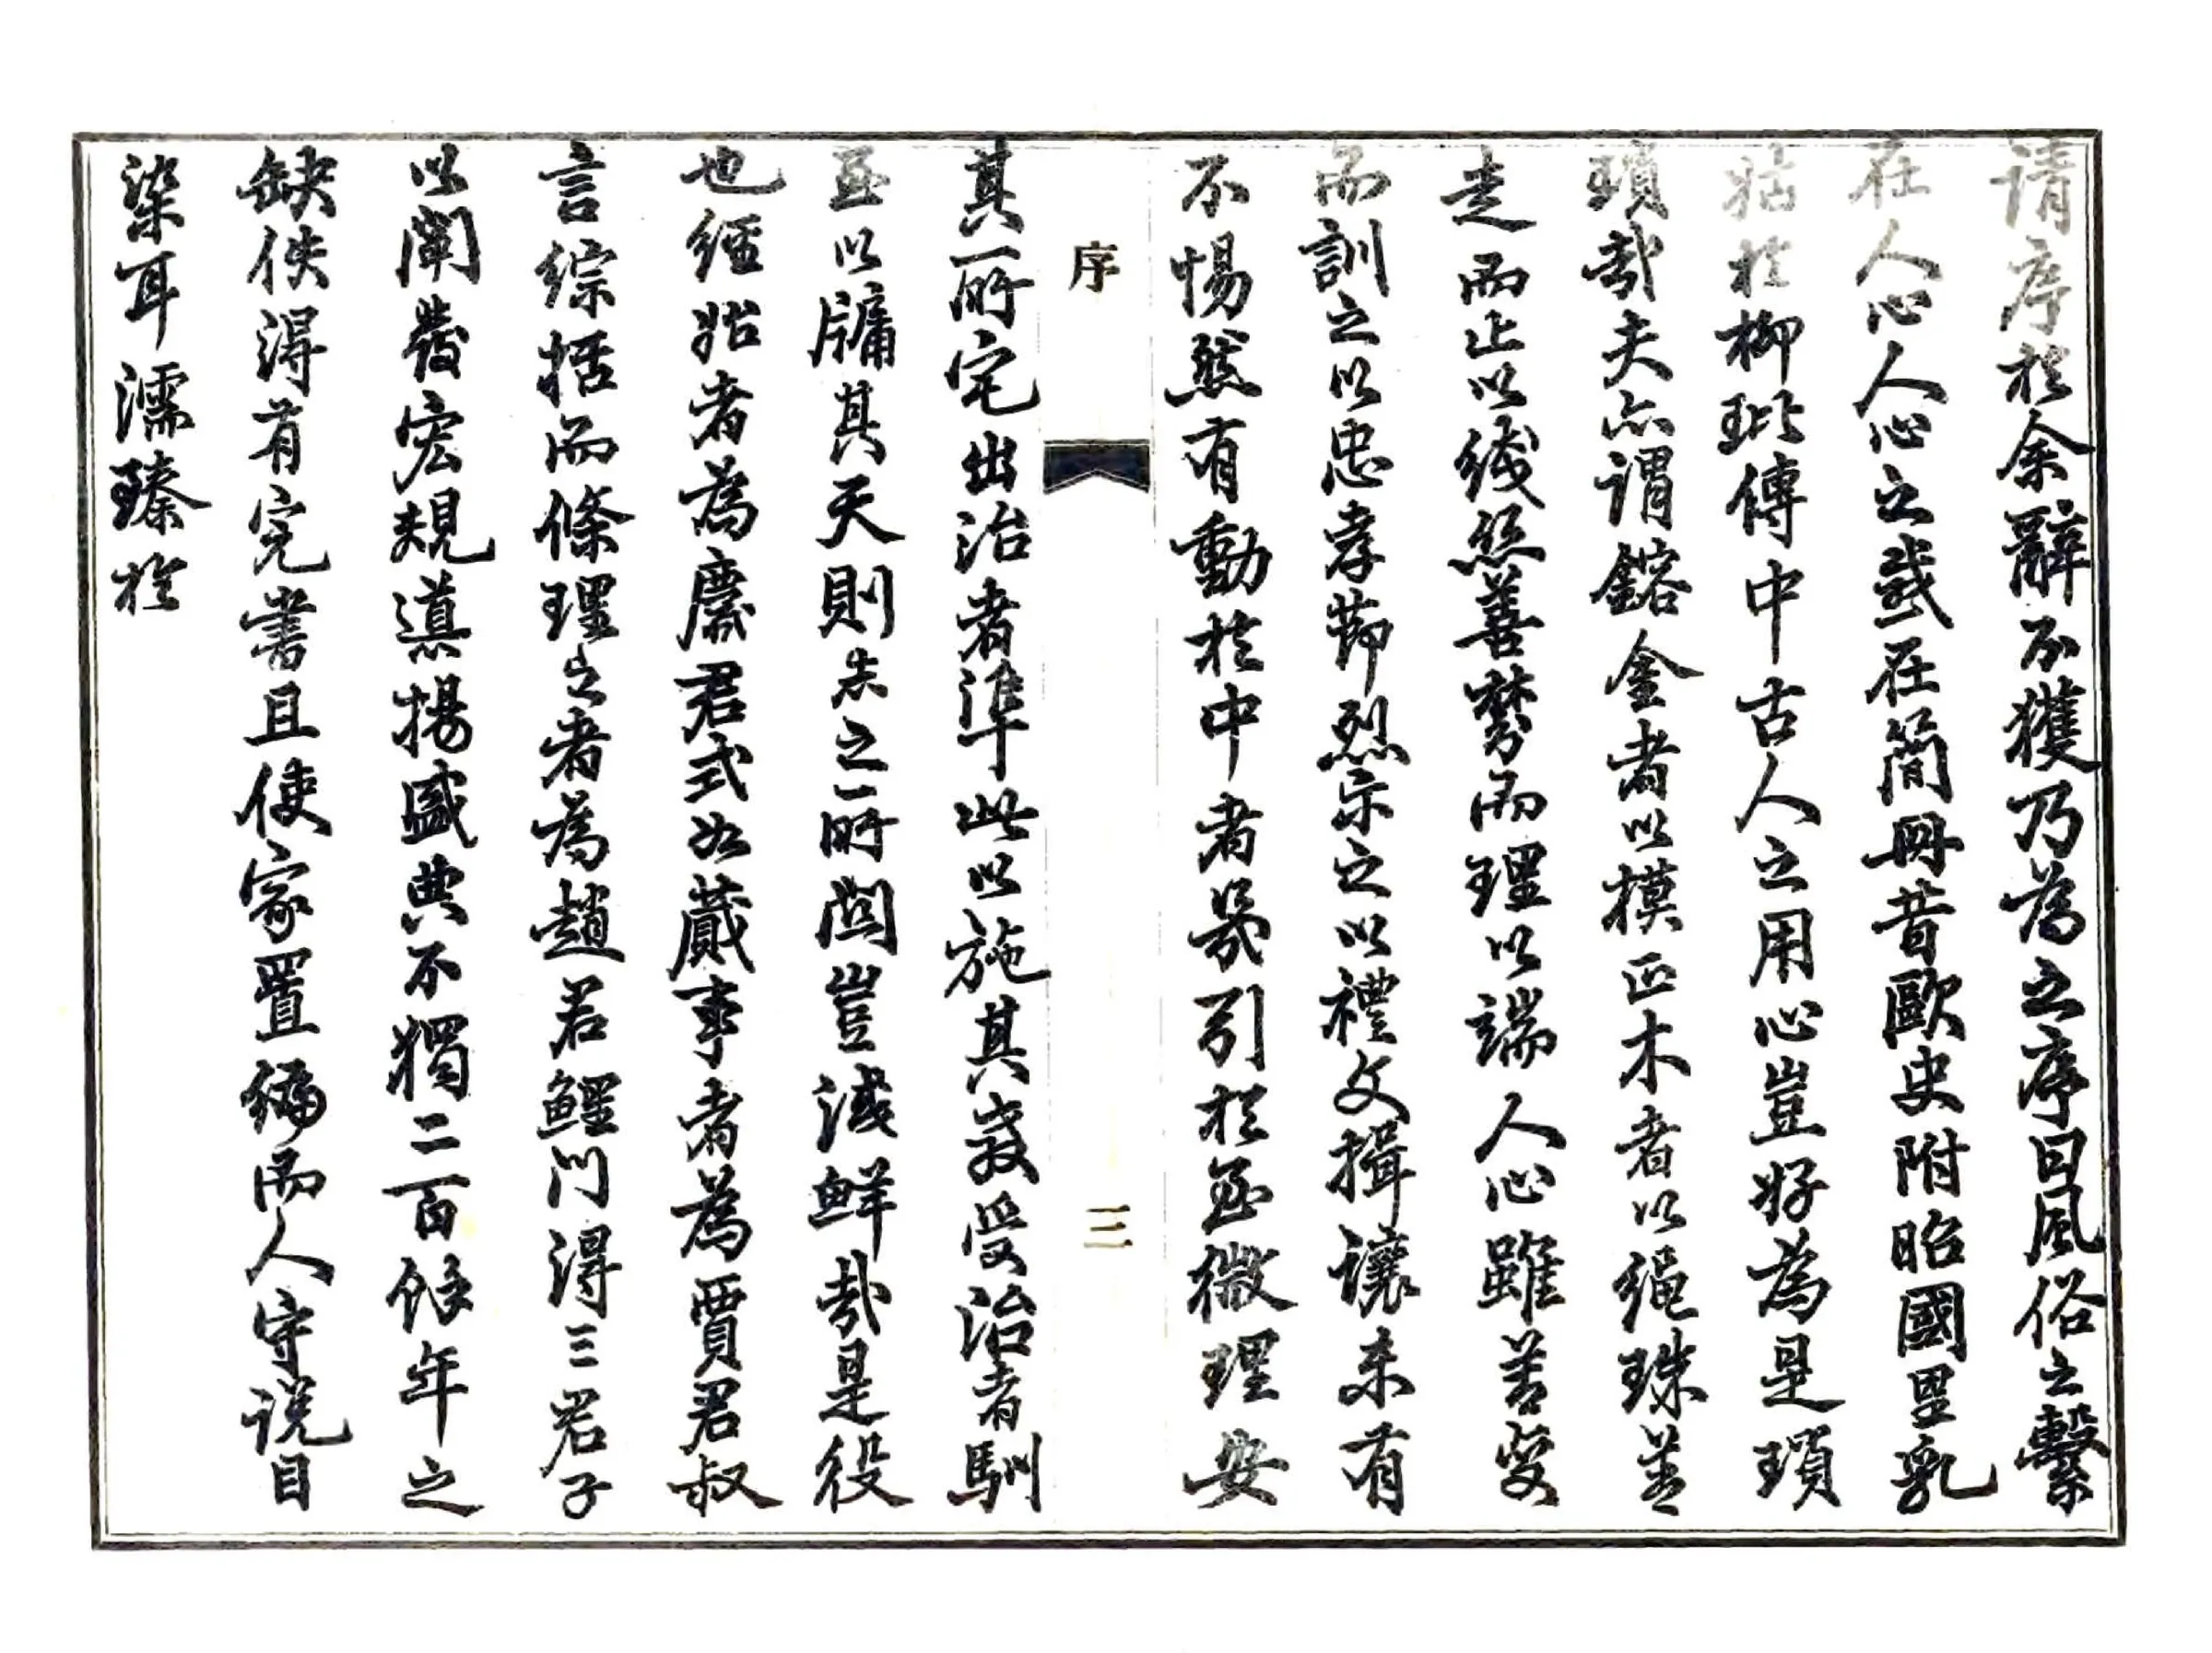 请序於余辭不獲乃為之序曰風俗之繫
在人心人心之感在簡冊昔歐史附昭國里乳
姑於柳玭傳中古人之用心豈好為是瑣
瑣哉夫亦謂鎔金者以模正木者以繩珠善
走而止以綫絲善棼而理以端人心雖善變
而訓之以忠孝節烈示之以禮文揖讓未有
不惕然有動於中者冞引於至微理安
序
三
其所宅出治者準此以施其教受治者馴
至以牖其天則失之所關豈淺鮮哉是役
也經始者為麐君式如蕆事者為賈君叔
言綜括而條理之者為趙君鯉門得三君子
以闡發宏規遠揚盛典不獨二百餘年之
缺佚得有完書且使家置編而人守説目
染耳濡臻於